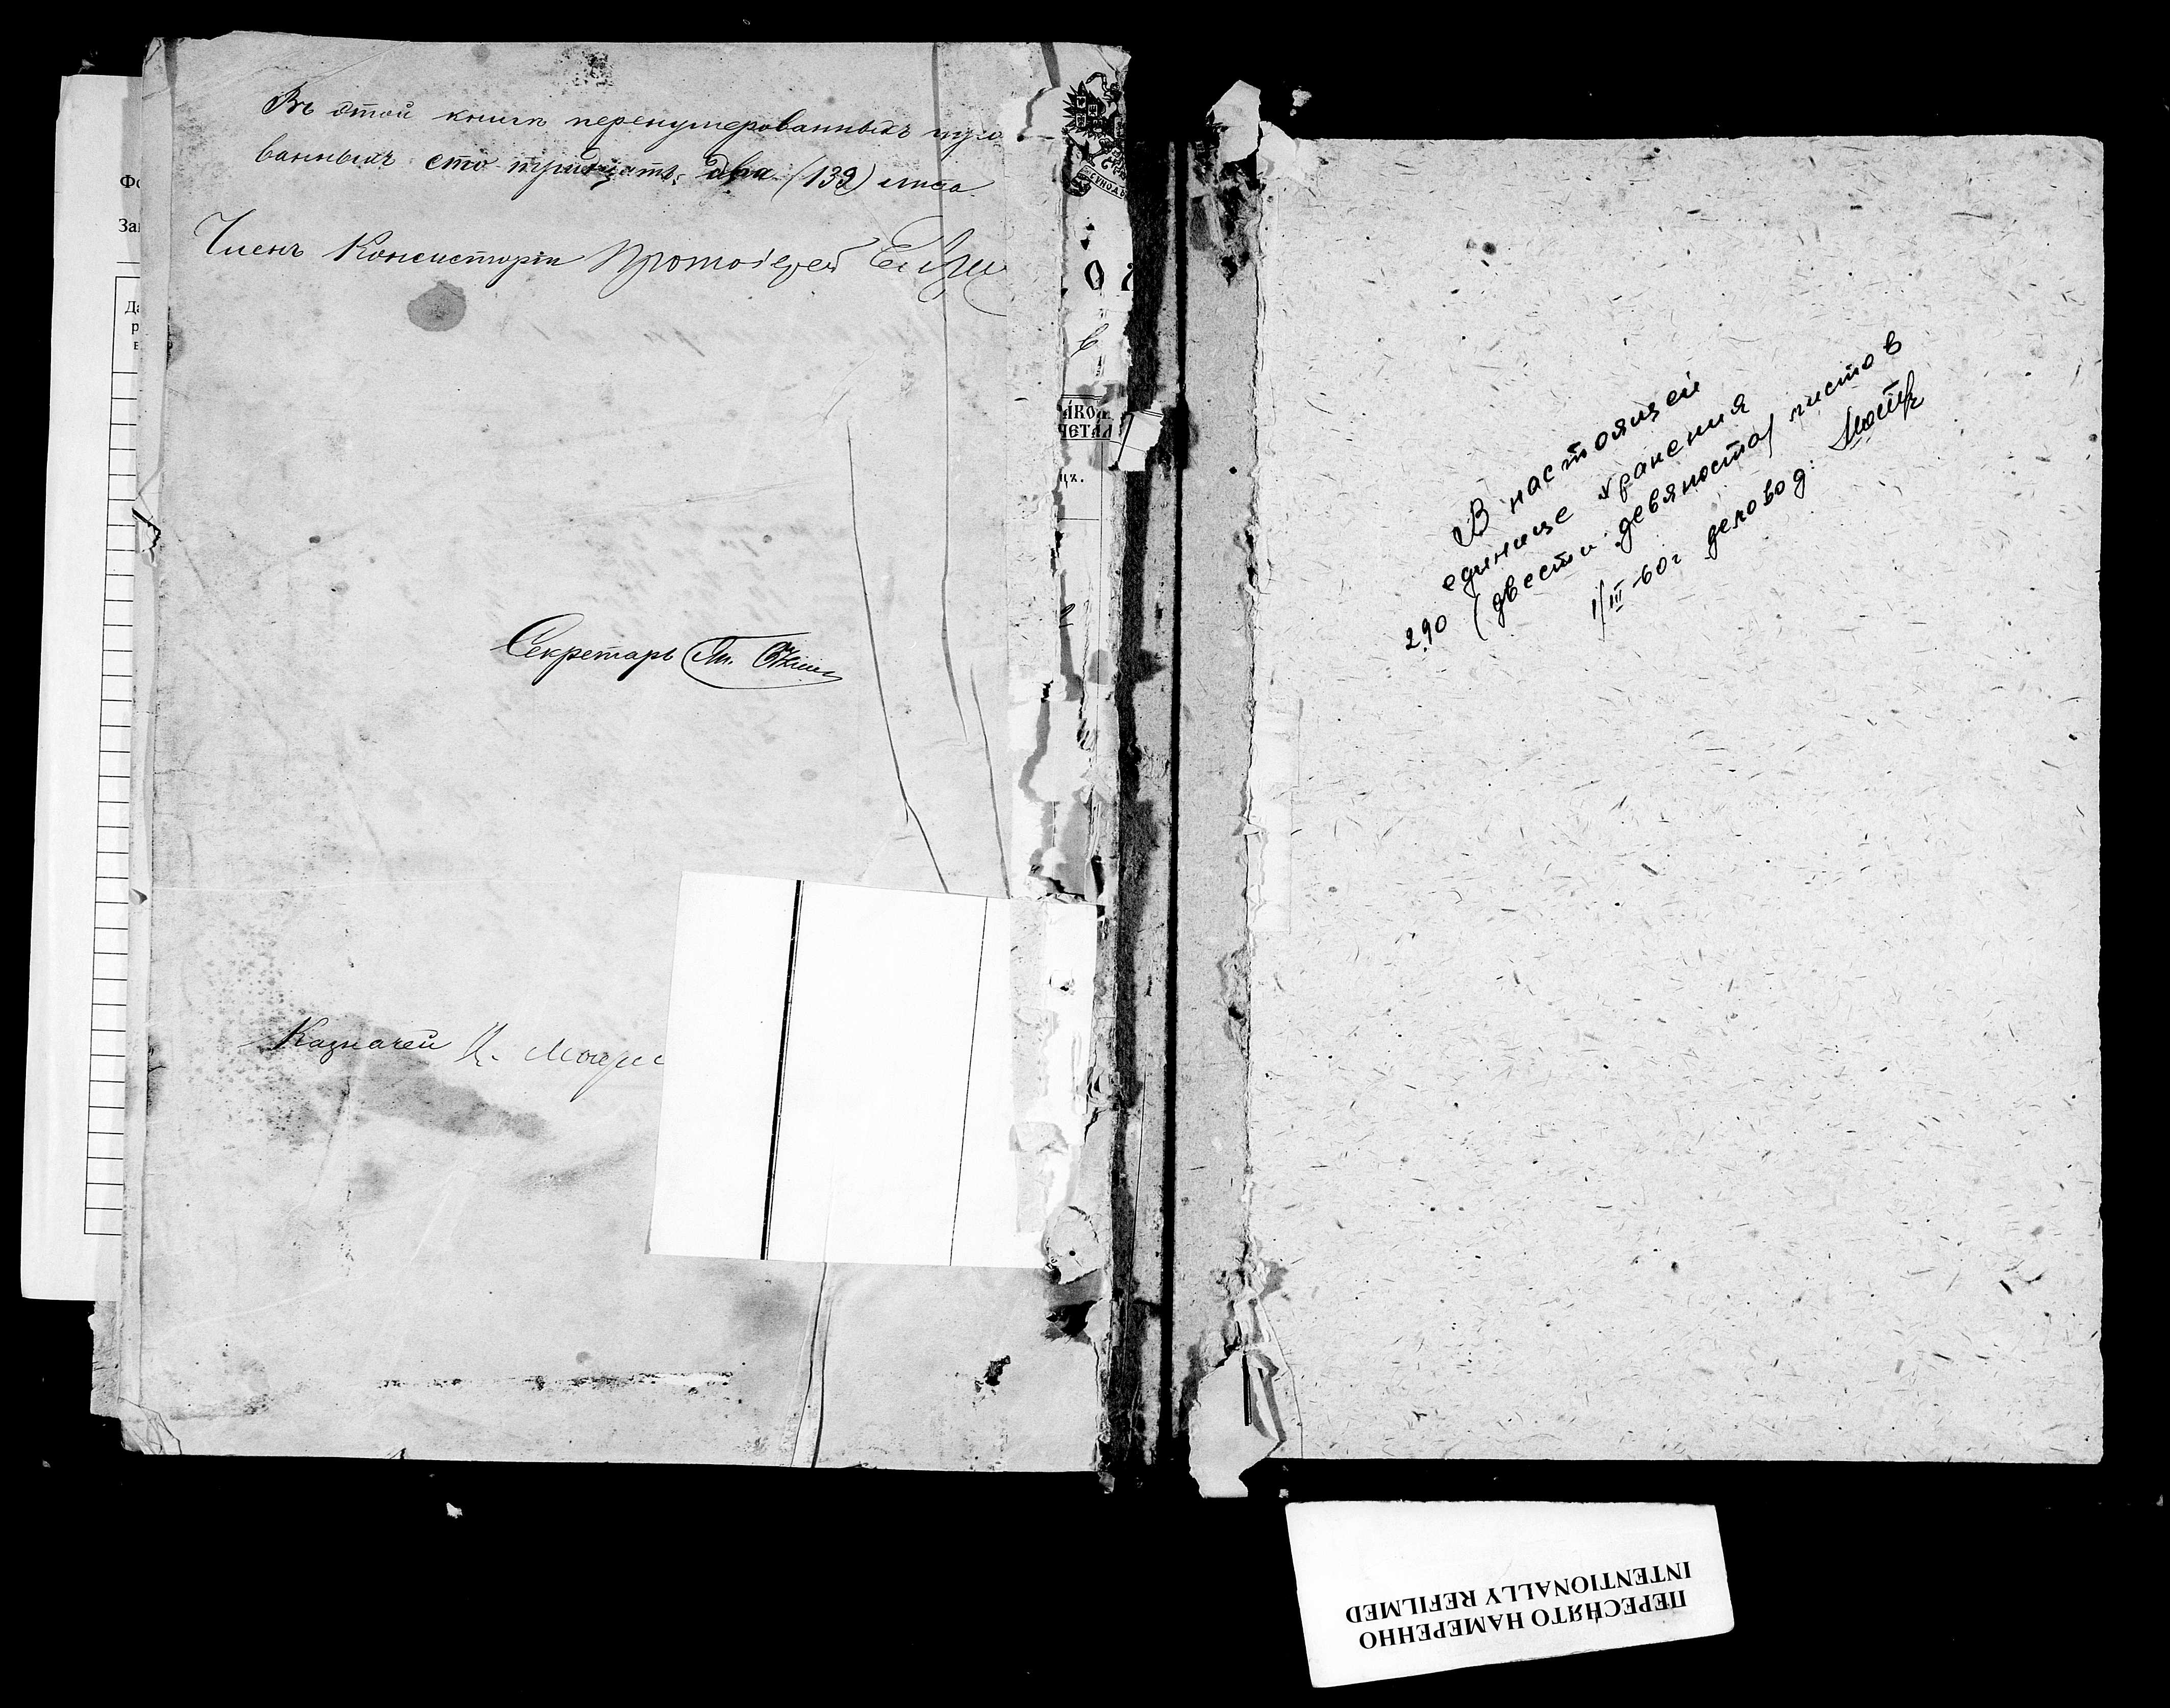 Въ этой книгѣ перенумерованныхъ пуро
ванныхъ сто тридцать два (132) листа
Членъ Консисторіи Протоіерей
Секретарь
Казначей
СѴНОДА
В настоящей
единице хранения
290 (двести девяносто) листов
1/III-60г деловод.
ПЕРЕСНЯТО НАМЕРЕННО
INTENTIONALLY REFILMED